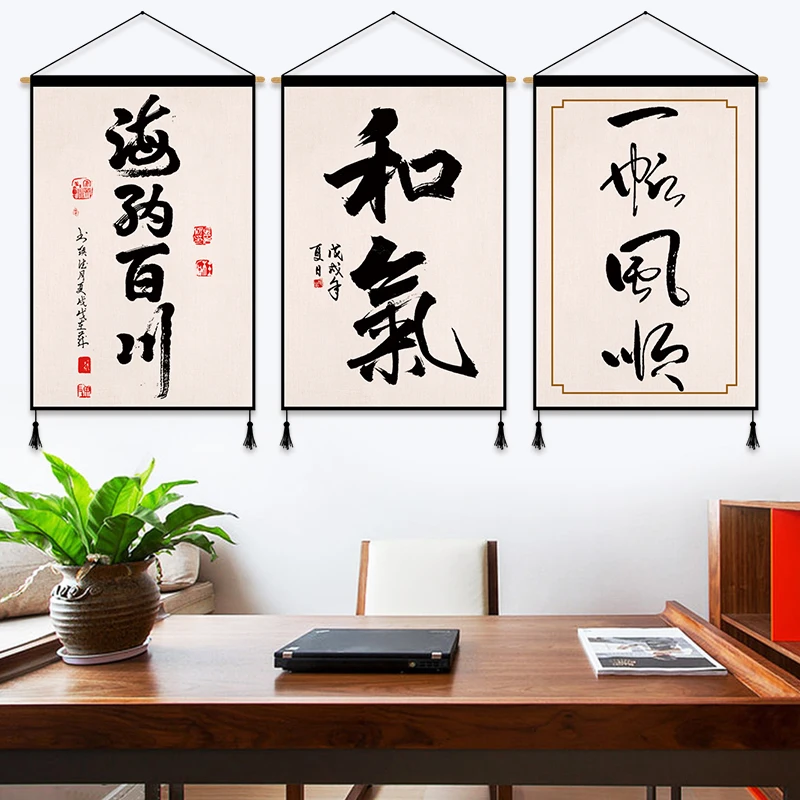 海納百川
和氣
戊戌年
夏日
一帆風順